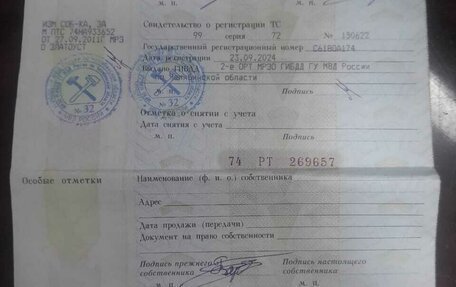 ИЗМ СОБ-КА, ЗА
М ПТС 74МА933652
ОТ 27.09.2011Г МРЭ
О ЗЛАТОУСТ
м. п. Подпись
Свидетельство о регистрации ТС
99 серия 72 № 150622
Государственный регистрационный номер С618ОА174
Дата регистрации 23.09.2024
Выдано ГИБДД 2-е ОРТ МРЭО ГИБДД ГУ МВД России
Челябинской области
м. п. Подпись
№ 32
№ 32
Отметка о снятии с учета
Дата снятия с учета
м. п. Подпись
74 РТ 269657
Особые отметки
Наименование (ф. и. о.) собственника
Адрес
Дата продажи (передачи)
Документ на право собственности
Подпись прежнего собственника
Подпись настоящего собственника
м. п. м. п.